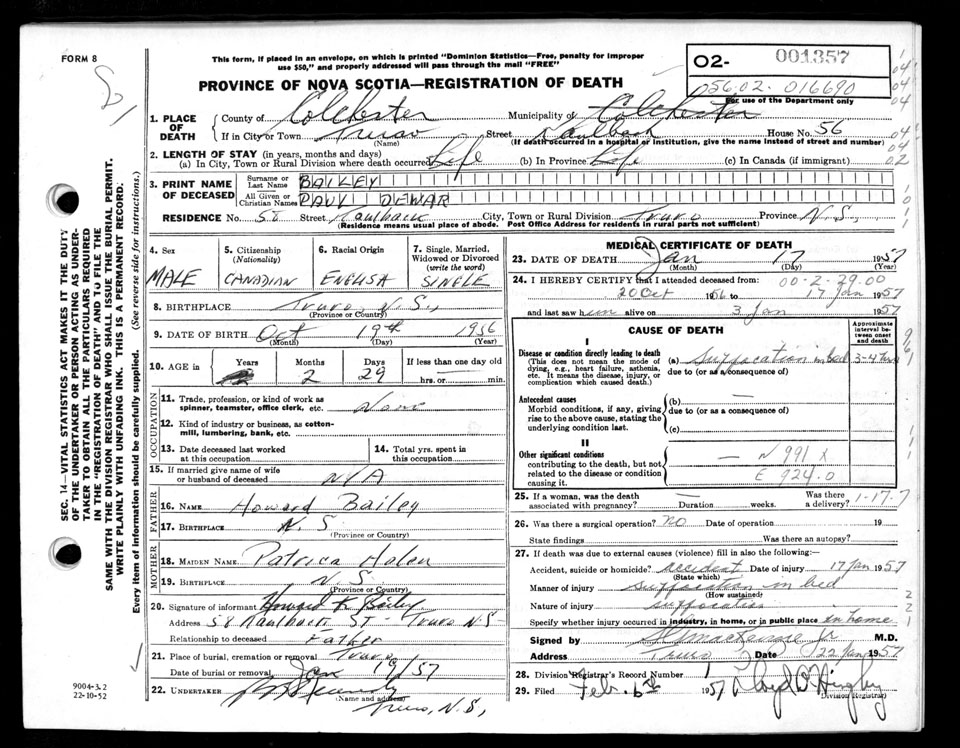 FORM 8
This form, if placed in an envelope, on which is printed "Dominion Statistics—Free, penalty for improper
use $50," and properly addressed will pass through the mail "FREE"
PROVINCE OF NOVA SCOTIA—REGISTRATION OF DEATH
O2- 001357
056.02. 016690
For use of the Department only
1. PLACE OF DEATH
County of Colchester Municipality of Colchester
If in City or Town Truro Street Kaulback House No. 56
(Name) (If death occurred in a hospital or institution, give the name instead of street and number)
2. LENGTH OF STAY (in years, months and days)
(a) In City, Town or Rural Division where death occurred Life (b) In Province Life (c) In Canada (if immigrant)
3. PRINT NAME OF DECEASED
Surname or Last Name BAILEY
All Given or Christian Names PAUL DEWAR
RESIDENCE No. Street Kaulback City, Town or Rural Division Truro Province N.S.,
(Residence means usual place of abode. Post Office Address for residents in rural parts not sufficient)
4. Sex MALE
5. Citizenship (Nationality) CANADIAN
6. Racial Origin ENGLISH
7. Single, Married, Widowed or Divorced (write the word) SINGLE
8. BIRTHPLACE Truro N.S.,
(Province or Country)
9. DATE OF BIRTH Oct 19th 1956
(Month) (Day) (Year)
10. AGE in Years Months 2 Days 29 If less than one day old
hrs. or min.
OCCUPATION
11. Trade, profession, or kind of work as
spinner, teamster, office clerk, etc. None
12. Kind of industry or business, as cotton-
mill, lumbering, bank, etc.
13. Date deceased last worked
at this occupation
14. Total yrs. spent in
this occupation
15. If married give name of wife
or husband of deceased N/A
FATHER
16. NAME Howard Bailey
17. BIRTHPLACE N.S
(Province or Country)
MOTHER
18. MAIDEN NAME Patrica
19. BIRTHPLACE N.S.
(Province or Country)
20. Signature of informant Howard K Bailey
Address 58 Kaulback ST - Truro N.S -
Relationship to deceased Father
21. Place of burial, cremation or removal Truro
Date of burial or removal Jan 19/57
22. UNDERTAKER
(Name and address)
Truro, N.S,
MEDICAL CERTIFICATE OF DEATH
23. DATE OF DEATH Jan 17 1957
(Month) (Day) (Year)
24. I HEREBY CERTIFY that I attended deceased from: 00-2-29.00
20 Oct 1956 to 17 Jan 1957
and last saw him alive on 3 Jan 1957
CAUSE OF DEATH
Approximate interval between onset and death
I
Disease or condition directly leading to death
(This does not mean the mode of
dying, e.g., heart failure, asthenia,
etc. It means the disease, injury, or
complication which caused death.)
(a) Suffocation in bed 3-4
due to (or as a consequence of)
Antecedent causes
Morbid conditions, if any, giving
rise to the above cause, stating the
underlying condition last.
(b) —
due to (or as a consequence of)
(c)
II
Other significant conditions
contributing to the death, but not
related to the disease or condition
causing it.
— N 991 X
E 924.0
25. If a woman, was the death
associated with pregnancy? — Duration weeks. Was there
a delivery? 1-17.7
26. Was there a surgical operation? no Date of operation 19
State findings Was there an autopsy?
27. If death was due to external causes (violence) fill in also the following:—
Accident, suicide or homicide? accident Date of injury 17 Jan 1957
(State which)
Manner of injury suffocation in bed
(How sustained)
Nature of injury suffocation
Specify whether injury occurred in industry, in home, or in public place in home
Signed by M.D.
Address Truro Date 22 Jan 1957
28. Division Registrar's Record Number 1
29. Filed Feb. 6th 1957
Division Registrar
SEC. 14—VITAL STATISTICS ACT MAKES IT THE DUTY
OF THE UNDERTAKER OR PERSON ACTING AS UNDER-
TAKER TO OBTAIN ALL THE PARTICULARS REQUIRED
IN THE "REGISTRATION OF DEATH" AND TO FILE THE
SAME WITH THE DIVISION REGISTRAR WHO SHALL ISSUE THE BURIAL PERMIT.
WRITE PLAINLY WITH UNFADING INK. THIS IS A PERMANENT RECORD.
Every item of information should be carefully supplied. (See reverse side for instructions.)
9004-3.2
22-10-52